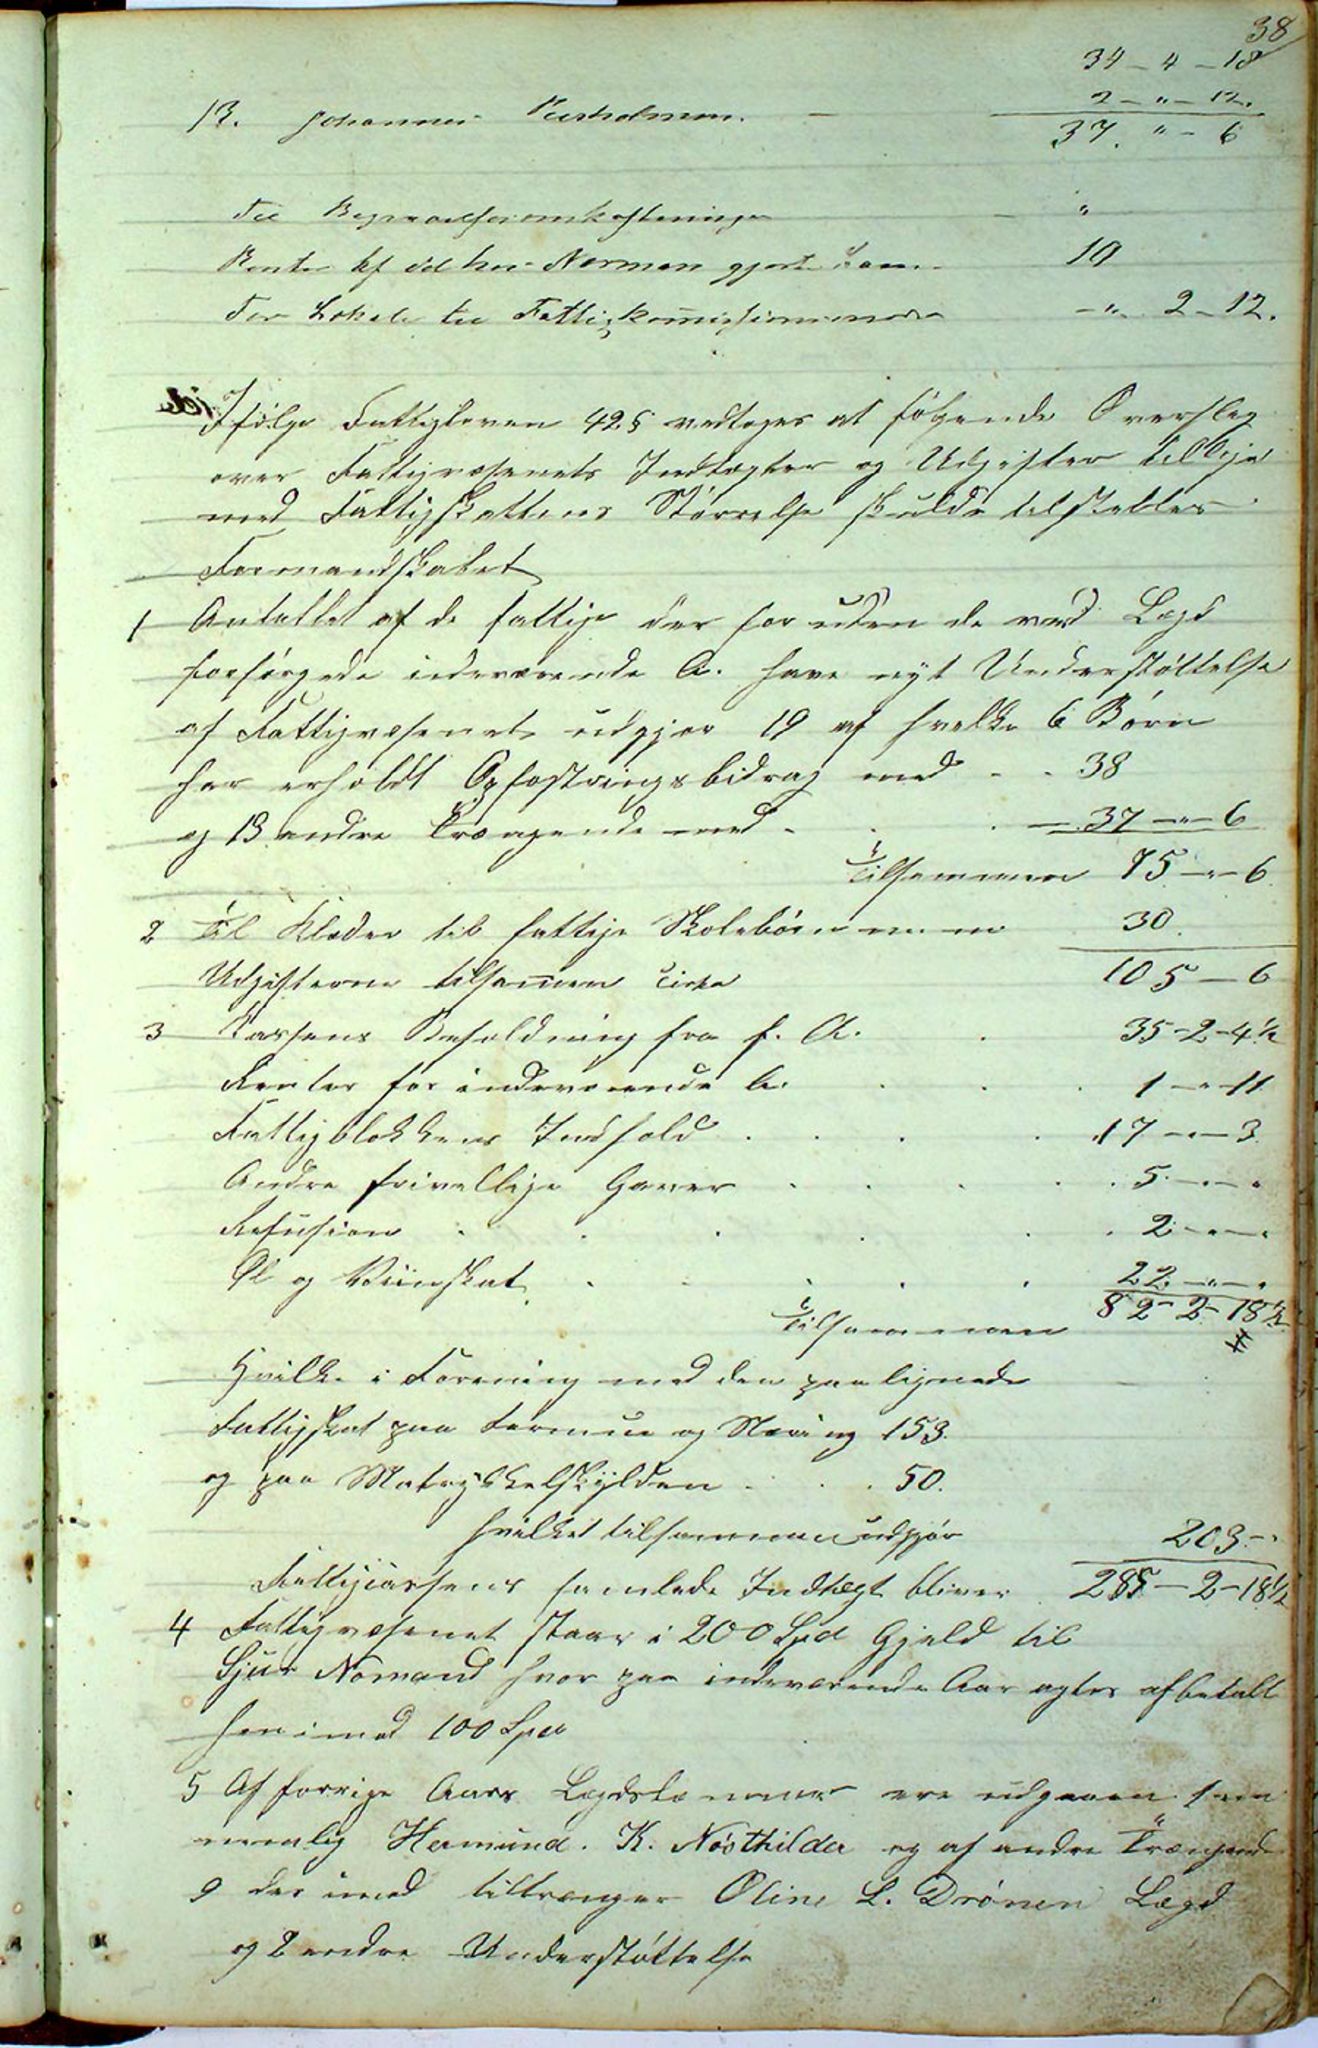 38
34 - 4 - 18
13. Johannes - 2 - " - 12.
37. " - 6
Til Begravelsesomkostninger - "
Renter af det hos Norman gjorte Laan - 10
For Lokale til Fattigkommissionen - " - 2 - 12.
Ifølge Fattigloven 42 § vedtoges at følgende Overslag
over Fattigvæsenets Indtægter og Udgifter tillige
med Fattigskattens Størrelse skulde tilstilles
Formandskabet
1 Antallet af de fattige der foruden de ved Lægd
forsørgede indeværende A. have nyt Understøttelse
af Fattigvæsenet udgjør 19 af hvilke 6 Børn
har erholdt Opfostringsbidrag med - - 38
og 13 andre Trængende med - . . - 37 - " - 6
Tilsammen 75 - " - 6
2 Til Klæder til fattige Skolebørn 30.
Udgifterne tilsamen cirka 105 - 6
3 Cassens Beholdning fra f. A. . 35 - 2 - 4 1/2
Renter for indeværende A. . . . 1 - " - 11
Fattigblokkens Indhold . . . . 17 - " - 3
Andre frivillige Gaver . . . . 5 - " - "
Refusion . . . . . 2 - " - "
Øl og Viinskat . . . . . 22 - " - "
Tilsammen 82 - 2 - 18 1/2
Hvilke i Forening med den paalignede
Fattigskat paa Formue og Næring 153.
og paa Matrykkelskylden . . . 50.
hvilket tilsammen udgjør 203 - "
Fattigcassens samlede Indtægt bliver 285 - 2 - 18 1/2
4 Fattigvæsenet staar i 200 Spd Gjeld til
Sjur Nomand hvor paa indeværende Aar agtes afbetalt
henimod 100 Spd
5 Af forrige Aars Lægdslemmer ere udgaaen
nemlig Hermund. K. Nøsthilder og af andre Trængende
9 derimod tiltrænger Oline L. Drönen Lægd
og 2 andre Understøttelse